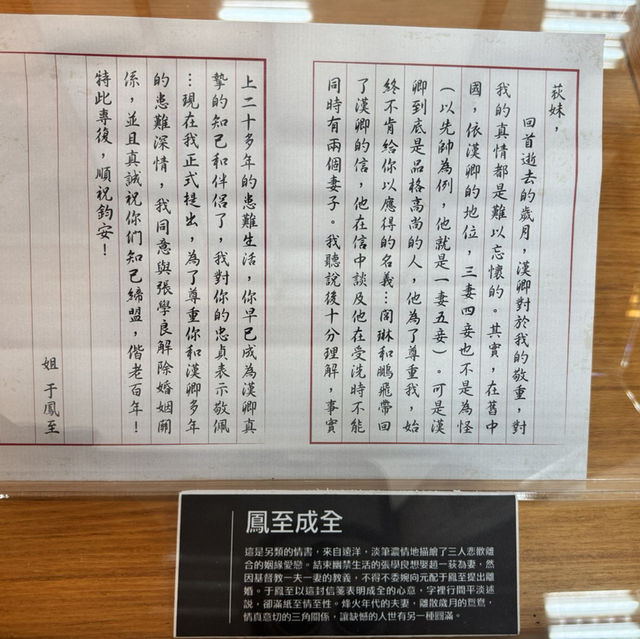 荻妹，
回首逝去的歲月，漢卿對於我的敬重，對
我的真情都是難以忘懷的。其實，在舊中
國，依漢卿的地位，三妻四妾也不是為怪
（以先帥為例，他就是一妻五妾）。可是漢
卿到底是品格高尚的人，他為了尊重我，始
終不肯給你以應得的名義…閭琳和鵬飛帶回
了漢卿的信，他在信中談及他在受洗時不能
同時有兩個妻子。我聽說後十分理解，事實
上二十多年的患難生活，你早已成為漢卿真
摯的知己和伴侶了，我對你的忠貞表示敬佩
…現在我正式提出，為了尊重你和漢卿多年
的患難深情，我同意與張學良解除婚姻關
係，並且真誠祝你們知己締盟，偕老百年！
特此專復，順祝鈞安！
姐 于鳳至
鳳至成全
這是另類的情書，來自遠洋，淡筆濃情地描繪了三人悲歡離
合的姻緣愛戀。結束幽禁生活的張學良想娶趙一荻為妻，然
因基督教一夫一妻的教義，不得不委婉向元配于鳳至提出離
婚。于鳳至以這封信箋表明成全的心意，字裡行間平淡述
說，卻滿紙至情至性。烽火年代的夫妻，離散歲月的鴛鴦，
情真意切的三角關係，讓缺憾的人世有另一種圓滿。